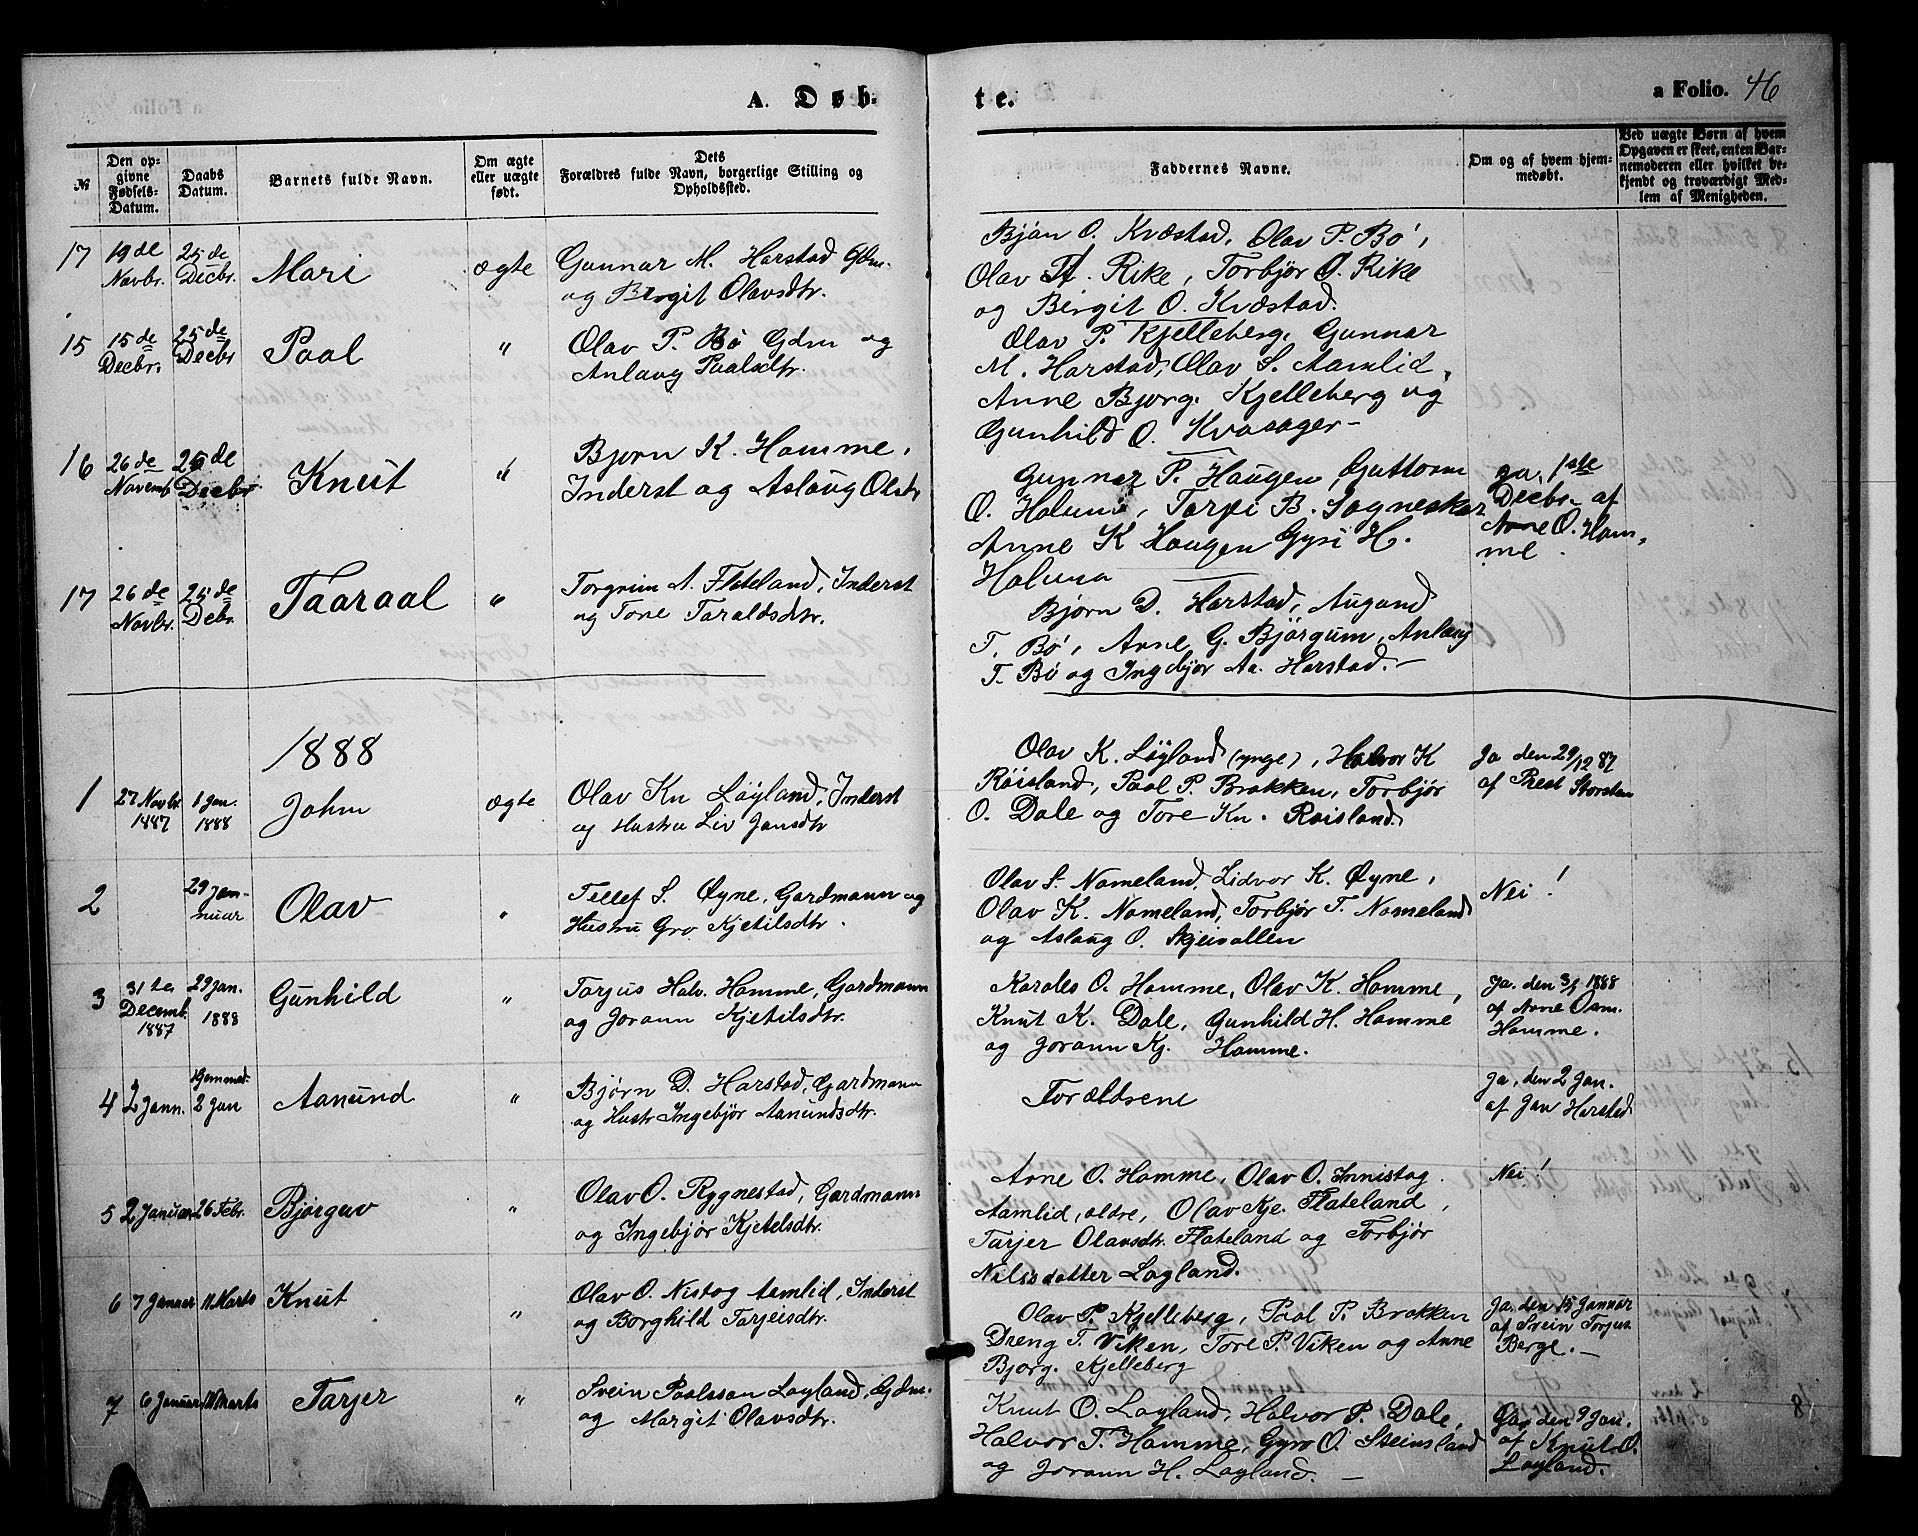 A. Døb-
te.
a Folio. 46
№
Den opgivne Fødsels-Datum.
Daabs Datum.
Barnets fulde Navn.
Om ægte eller uægte født.
Dets Forældres fulde Navn, borgerlige Stilling og Opholdssted.
Faddernes Navne.
Om og af hvem hjemmedøbt.
Ved uægte Børn af hvem Opgaven er skeet, enten Barnemoderen eller hvilket bekjendt og troværdigt Medlem af Menigheden.
17 19de Novbr. 25de Decbr. Mari ægte
Gunnar M. Harstad Gdm.
og Birgit Olavsdtr.
Bjøn O. Kvæstad, Olav P. Bø,
Olav H. Rike, Torbjør O. Rike
og Birgit O. Kvæstad.
15 15de Decbr. 25de Decbr Paal "
Olav P. Bø Gdm og
Anlaug Paalsdtr.
Olav P. Kjelleberg, Gunnar
M. Harstad, Olav S. Aamlid,
Anne Bjorg. Kjelleberg og
Gunhild O. Kvasager –
16 26de Novemb 25de Decbr. Knut "
Bjørn K. Homme,
Inderst og Aslaug Olsdtr
Gunnar P. Haugen, Guttorm
O. Holum, Tarjei B. Sogneskar
Anne K Haugen Gyri H.
Holum
ja, 1ste
Decbr. af
Arne O. Hom-
me.
17 26de Novbr. 25de Decbr. Taaraal "
Torgrim A. Flateland, Inderst
og Tone Taraldsdtr.
Bjørn D. Harstad, Augund
T. Bø, Arne G. Bjørgum, Anlaug
T. Bø og Ingebjør Aa. Harstad. –
1888
1 27 Novbr. 1887 1 Jan. 1888 John ægte
Olav Kn Løyland, Inderst
og Hustru Liv Jonsdtr
Olav K. Løyland (ynge), Halvor K
Røisland, Paal P. Brokken, Torbjør
O. Dale og Tore Kn. Røisland.
Ja den 29/12 87
af Prest Storsten
2 29 Jannuar Olav "
Tellef S. Øyne, Gardmann og
Hustru Gro Kjetilsdtr.
Olav S. Nomeland, Lidvor K. Øyne,
Olav K. Nomeland, Torbjør T. Nomeland
og Aslaug O. Skjeivollen
Nei!
3 31te Decemb. 1887 29 Jan. 1888 Gunhild "
Tarjus Halv. Homme, Gardmann
og Jorann Kjetilsdtr.
Karoles O. Homme, Olav K. Homme,
Knut K. Dale, Gunhild H. Homme
og Jorann Kj. Homme.
Ja. den 3/1 1888
af Arne Osm.
Homme.
4 2 Jann. hjemmed. 2 Jan Aanund "
Bjørn D. Harstad, Gardmann
og Hustr Ingebjør Aanundsdtr.
Forældrene
Ja, den 2 Jan.
af Jan Harstad
5 2 Januar 26 Febr. Bjørgav "
Olav O. Rygnestad, Gardmann
og Ingebjør Kjetelsdtr.
Arne O. Homme, Olav O. Innistog
Aamlid, aldre, Olav Kje. Flateland,
Tarjer Olavsdtr. Flateland og Torbjør
Nilssdatter Løyland.
Nei!
6 7 Januar 11 Marts Knut "
Olav O. Nistog Aamlid, Inderst
og Borghild Tarjeisdtr.
Olav P. Kjelleberg, Paal P. Brokken
Dreng T. Viken, Tore P. Viken og Anne
Bjorg. Kjelleberg
Ja. den 15 Januar
af Svein Torjus.
Berge. –
7 6 Januar 11 Marts Tarjer "
Svein Paalsson Løyland, Gdm.
og Margit Olavsdtr.
Knut O. Løyland, Halvor P. Dale,
Halvor T. Homme, Gyro O. Steinsland
og Jorann H. Løyland. –
Ja, den 9 Jan.
af Knut O.
Løyland.